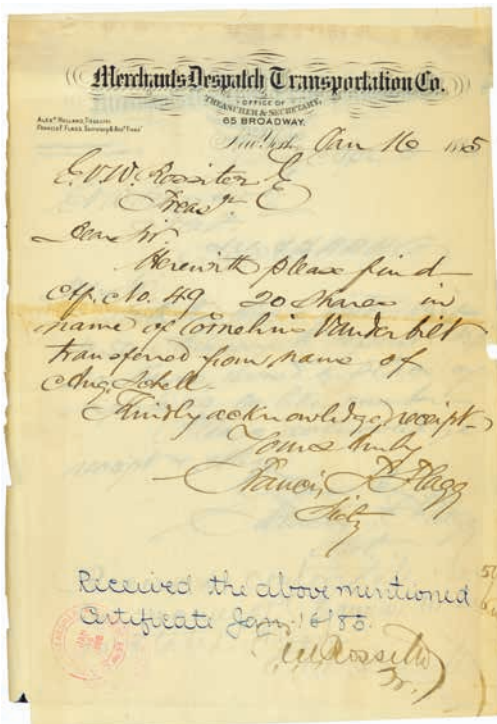 Merchants Despatch Transportation Co.
OFFICE OF
TREASURER & SECRETARY,
65 BROADWAY.
ALEX. HOLLAND, TREASURER
FRANCIS F. FLAGG, SECRETARY & ASST TREASR
New York, Jan 16 1885
E. V. W. Rossiter E
Treasr
Dear Sir
Herewith please find
Ctf. No. 49 20 Shares in
name of Cornelius Vanderbilt
transferred from name of
Aug. Schell
Kindly acknowledge receipt
Yours truly
Francis F. Flagg
Secty
Received the above mentioned
Certificate Jany. 16/85.
Rossiter
Tr.